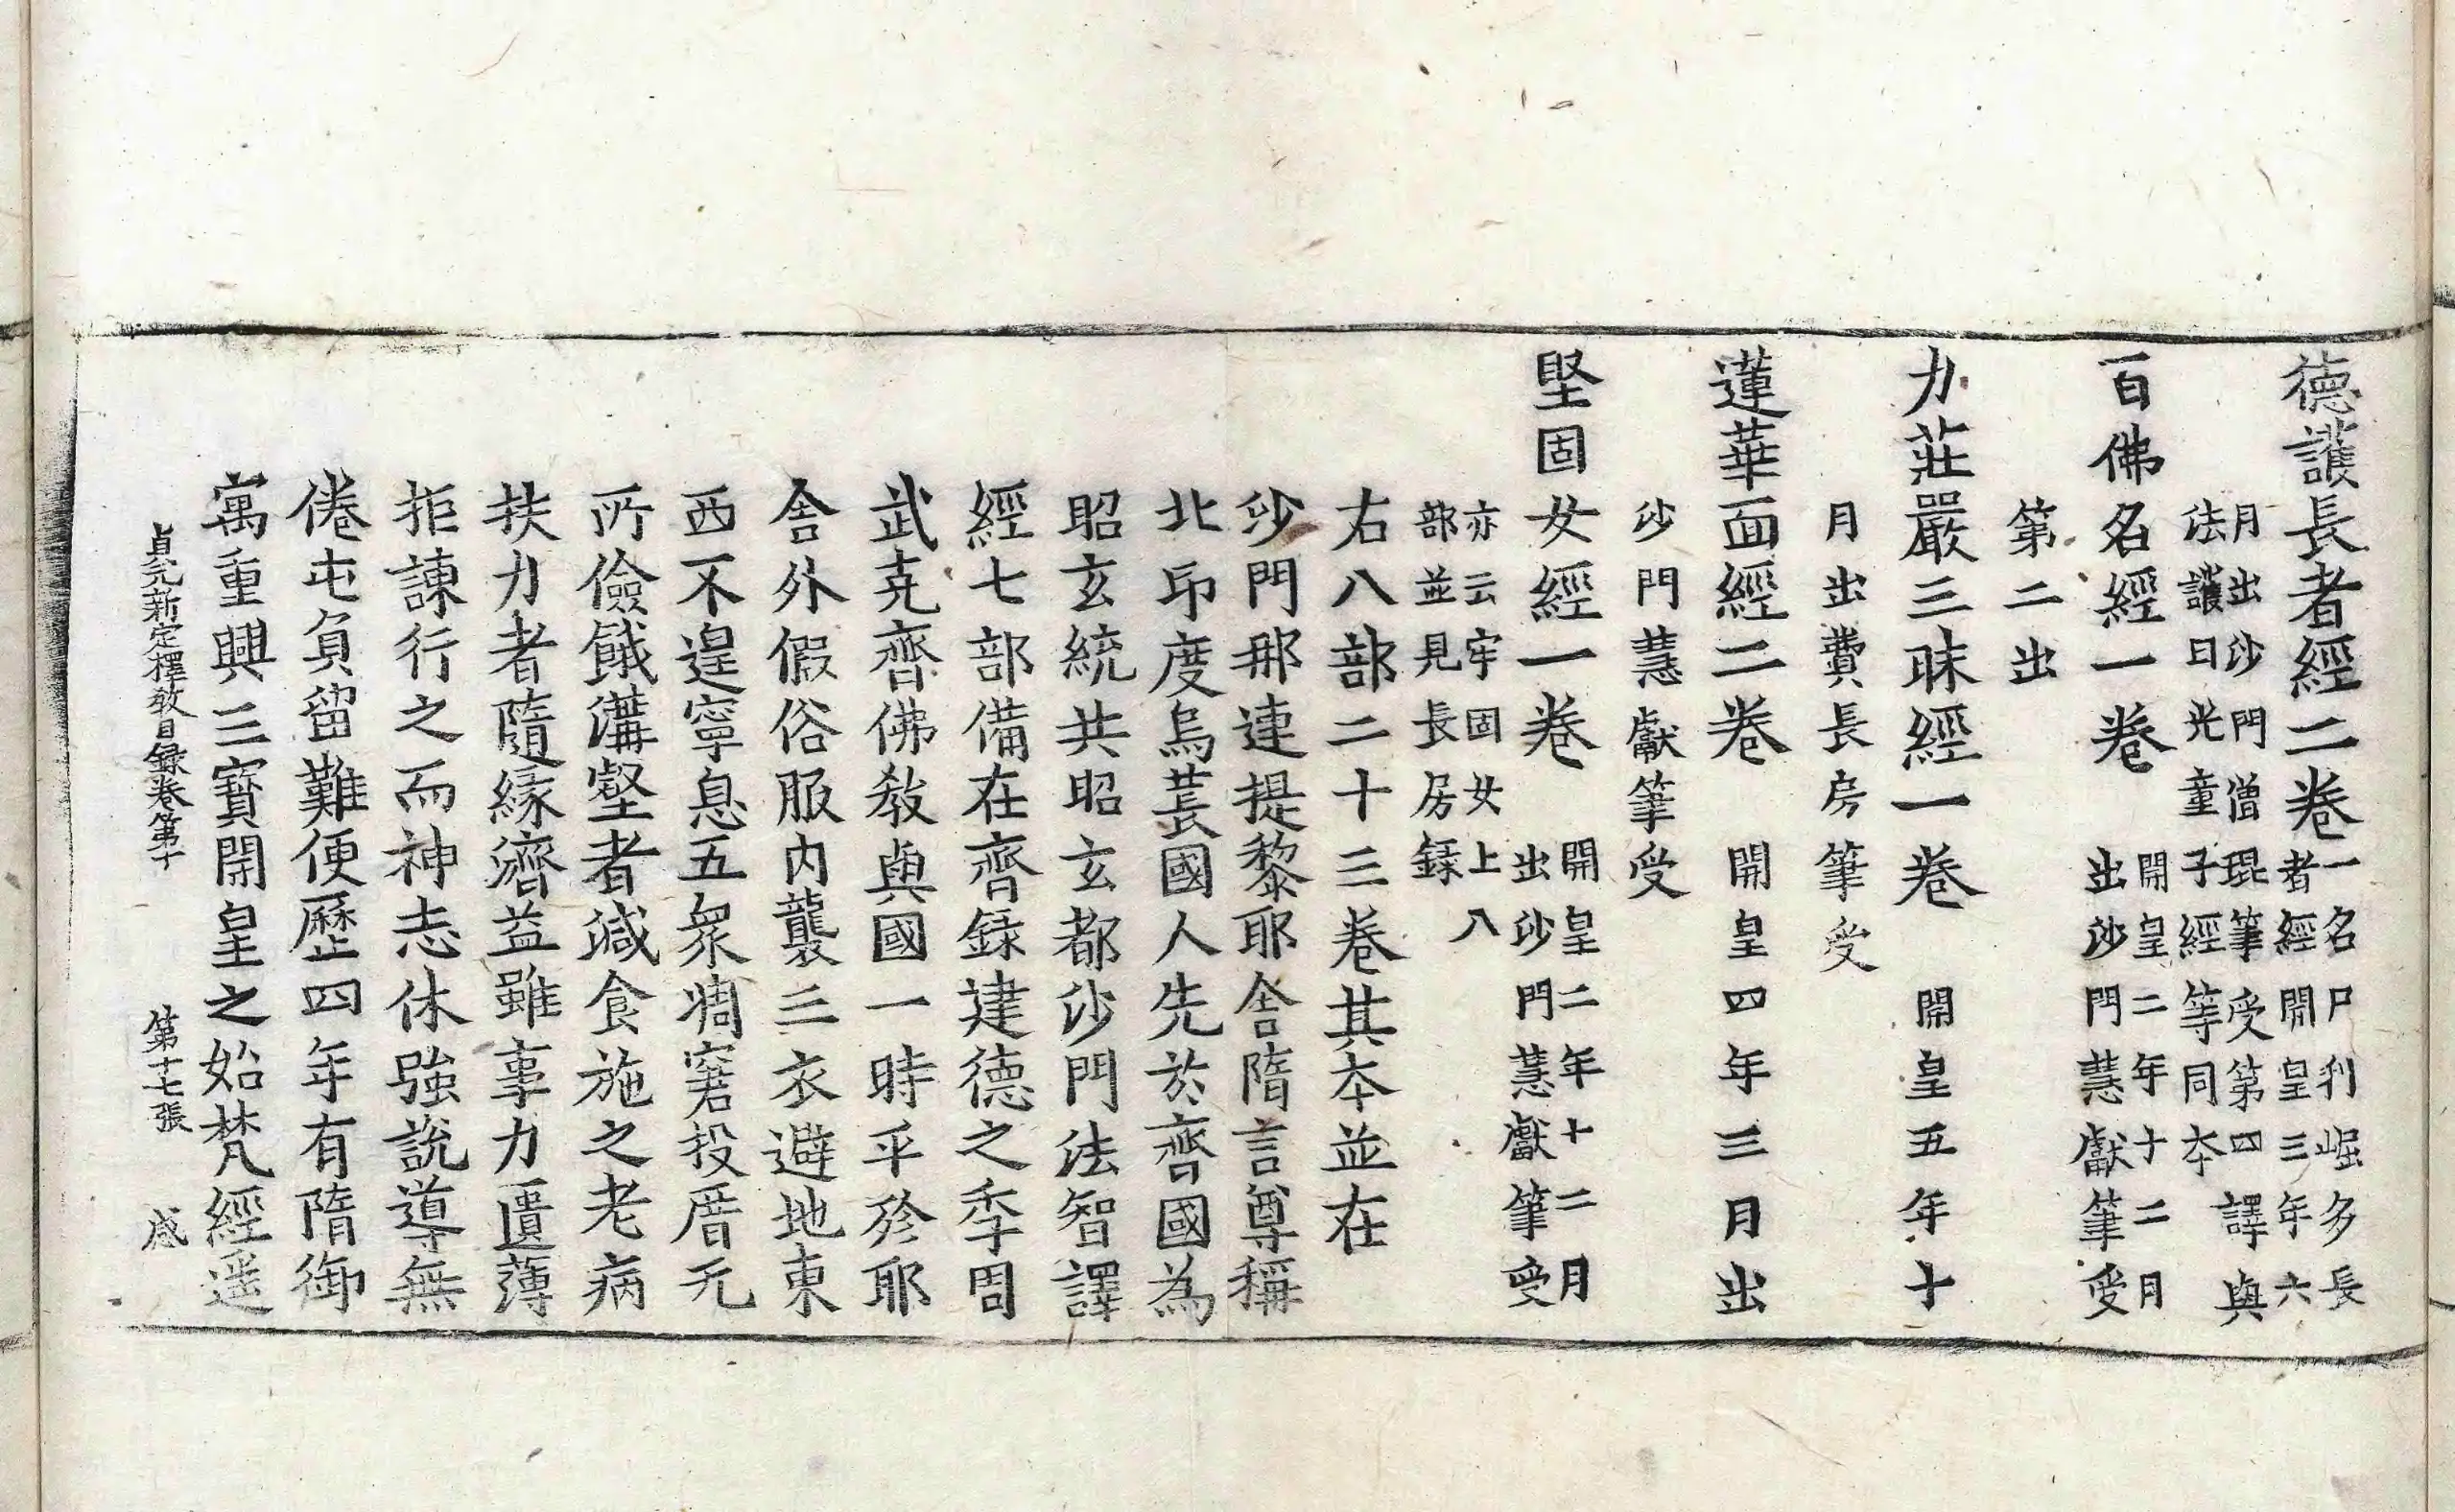 德護長者經二卷一名尸利崛多長
者經開皇三年六
月出沙門僧琨筆受第四譯與
法護日光童子經等同本
百佛名經一卷開皇二年十二月
出沙門慧獻筆受
第二出
力莊嚴三昧經一卷開皇五年十
月出費長房筆受
蓮華面經二卷開皇四年三月出
沙門慧獻筆受
堅固女經一卷開皇二年十二月
出沙門慧獻筆受
亦云牢固女上八
部並見長房録
右八部二十三卷其本並在
沙門那連提黎耶舍隋言尊稱
北印度烏萇國人先於齊國為
昭玄統共昭玄都沙門法智譯
經七部備在齊録建德之季周
武克齊佛教與國一時平殄耶
舍外假俗服内襲三衣避地東
西不遑寧息五衆凋窘投厝无
所儉餓溝壑者減食施之老病
扶力者隨緣濟益雖事力匱薄
拒諫行之而神志休強說導無
倦屯負留難便歷四年有隋御
寓重興三寶開皇之始梵經遥
貞元新定釋教目録卷第十　第十七張　感